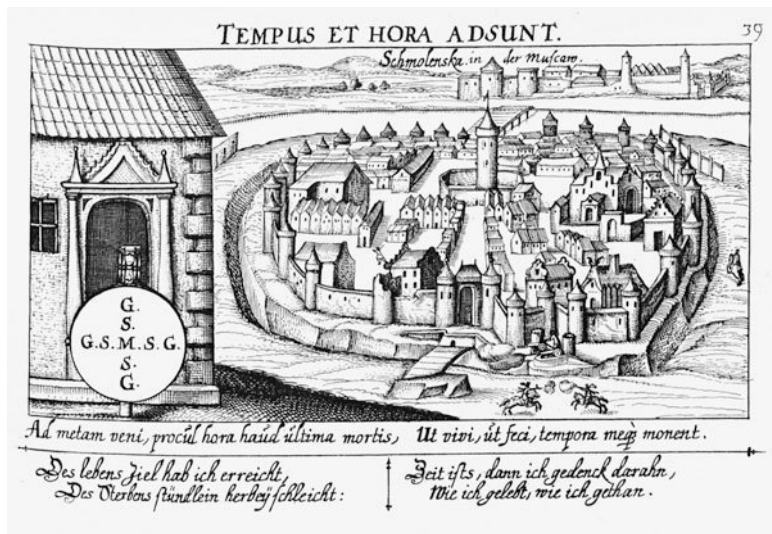 TEMPUS ET HORA ADSUNT.
39
Schmolenska in der Muscaw.
G.
S.
G.S.M.S.G.
S.
G.
Ad metam veni, procul hora haud ultima mortis, Ut vivi, ut feci, tempora meq3 monent.
Des lebens Ziel hab ich erreicht,
Des Sterbens stündlein herbeÿ schleicht:
Zeit ists, dann ich gedenck darahn,
Wie ich gelebt, wie ich gethan.